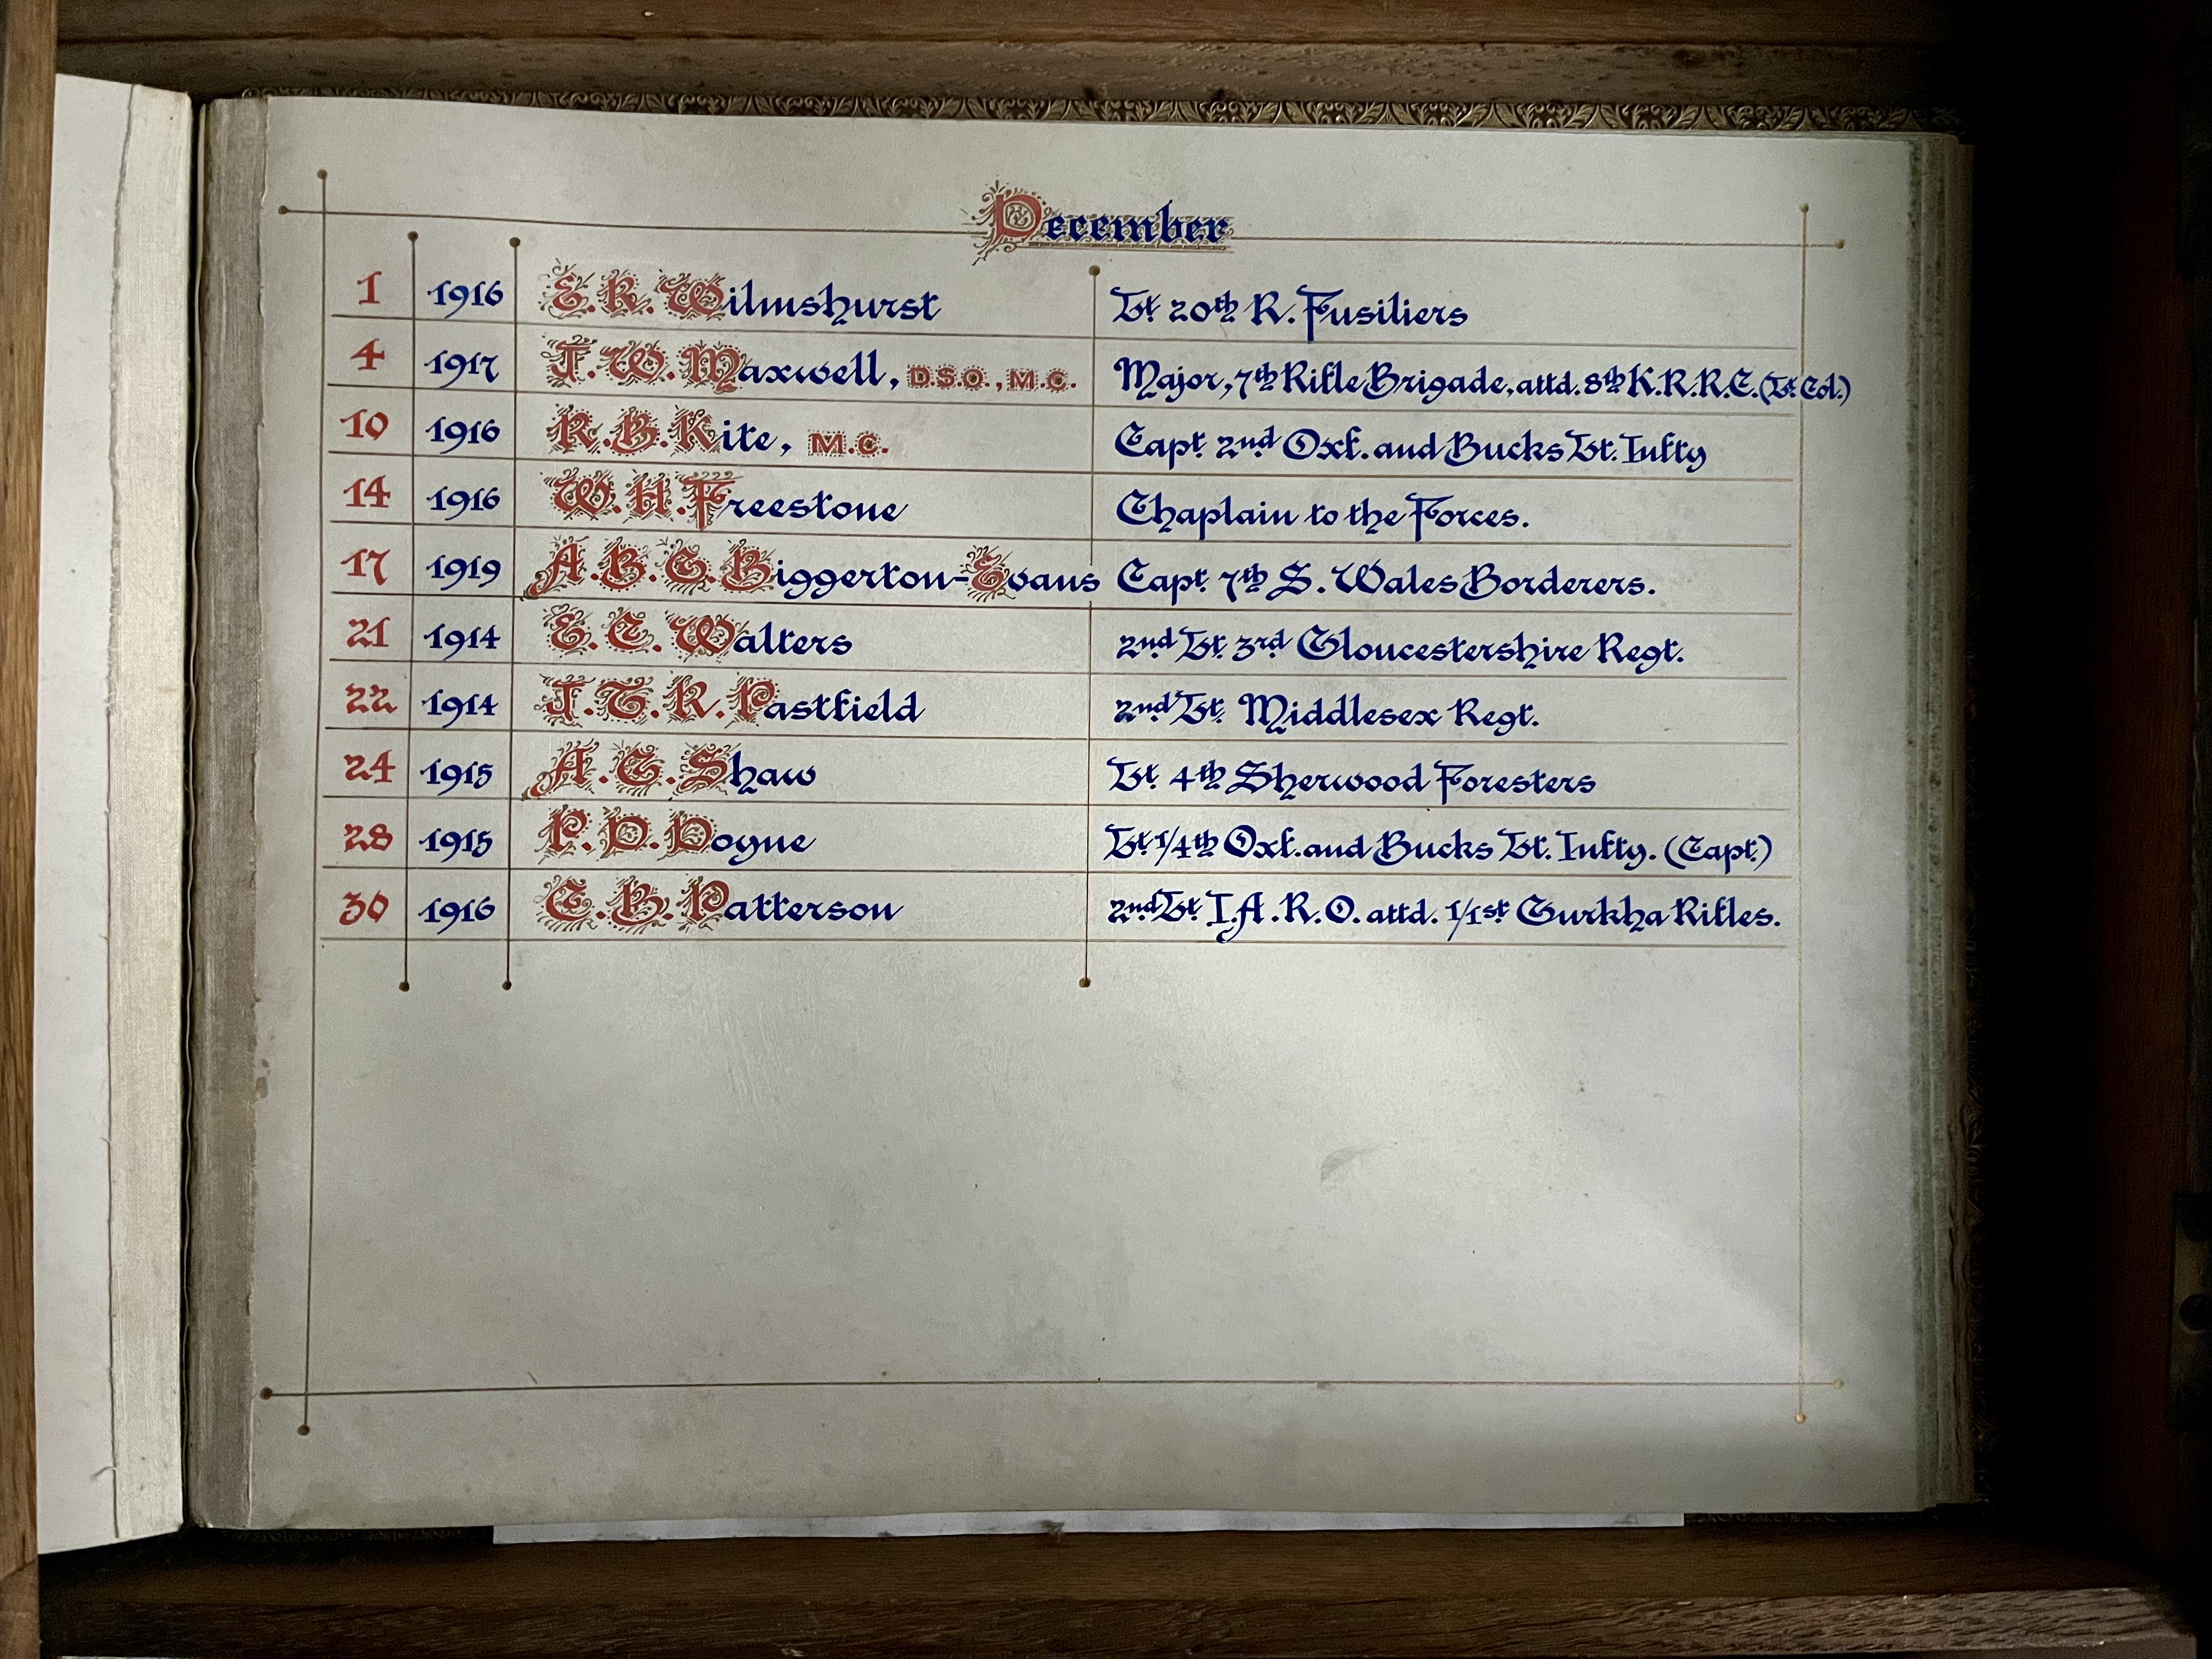 December
1 1916 E. R. Wilmshurst Lt 20th R. Fusiliers
4 1917 J. W. Maxwell, D.S.O., M.C. Major, 7th Rifle Brigade, attd. 8th K.R.R.C. (Lt. Col.)
10 1916 R. B. Kite, M.C. Capt. 2nd Oxf. and Bucks Lt. Infty
14 1916 W. H. Freestone Chaplain to the Forces.
17 1919 A. B. C. Biggerton-Evans Capt. 7th S. Wales Borderers.
21 1914 E. C. Walters 2nd Lt. 3rd Gloucestershire Regt.
22 1914 J. T. R. Pastfield 2nd Lt. Middlesex Regt.
24 1915 A. G. Shaw Lt. 4th Sherwood Foresters
28 1915 P. D. Doyne Lt 1/4th Oxf. and Bucks Lt. Infty. (Capt.)
30 1916 C. B. Patterson 2nd Lt I.A.R.O. attd. 1/1st Gurkha Rifles.